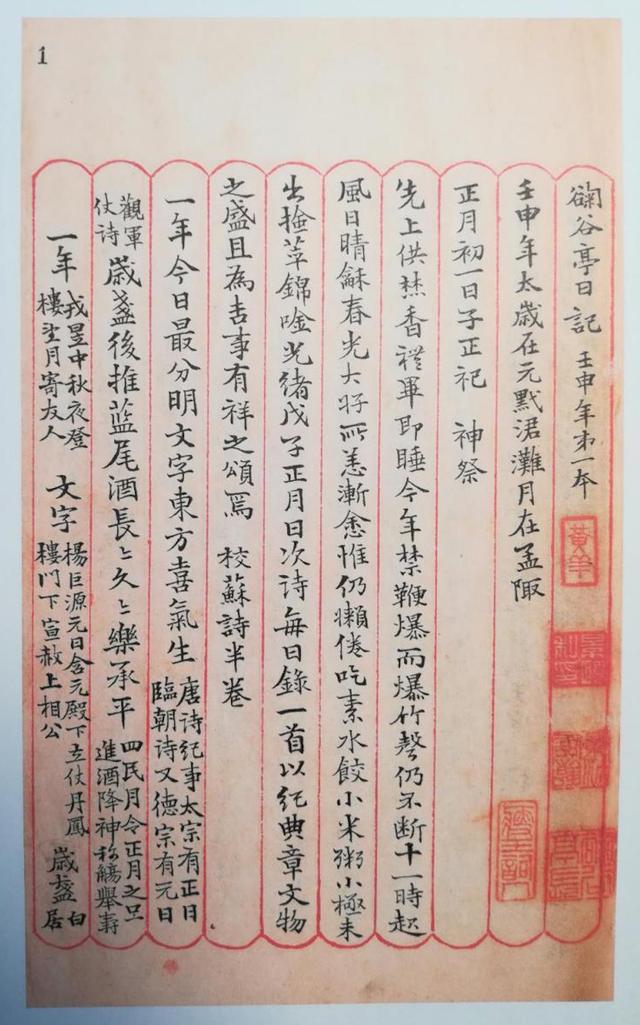 1
䥯谷亭日記 壬申年第一本
黄羊
壬申年太歲在元默涒灘月在孟陬
正月初一日子正祀 神祭
先上供焚香禮畢即睡今年禁鞭爆而爆竹聲仍不斷十一時起
風日晴龢春光大好所恙漸愈惟仍懶倦吃素水餃小米粥小極未
出撿萃錦唫光緒戊子正月日次詩每日錄一首以紀典章文物
之盛且為吉事有祥之頌焉 校蘇詩半卷
一年今日最分明文字東方喜氣生 唐詩紀事太宗有正日
臨朝詩又德宗有元日
觀軍
仗詩 歲盞後推藍尾酒長〻久〻樂承平 四民月令正月之旦
進酒降神称觴舉壽
一年 戎昱中秋夜登
樓望月寄友人 文字 楊巨源元日含元殿下立仗丹鳳
樓門下宣赦上相公 歲盞 白
居